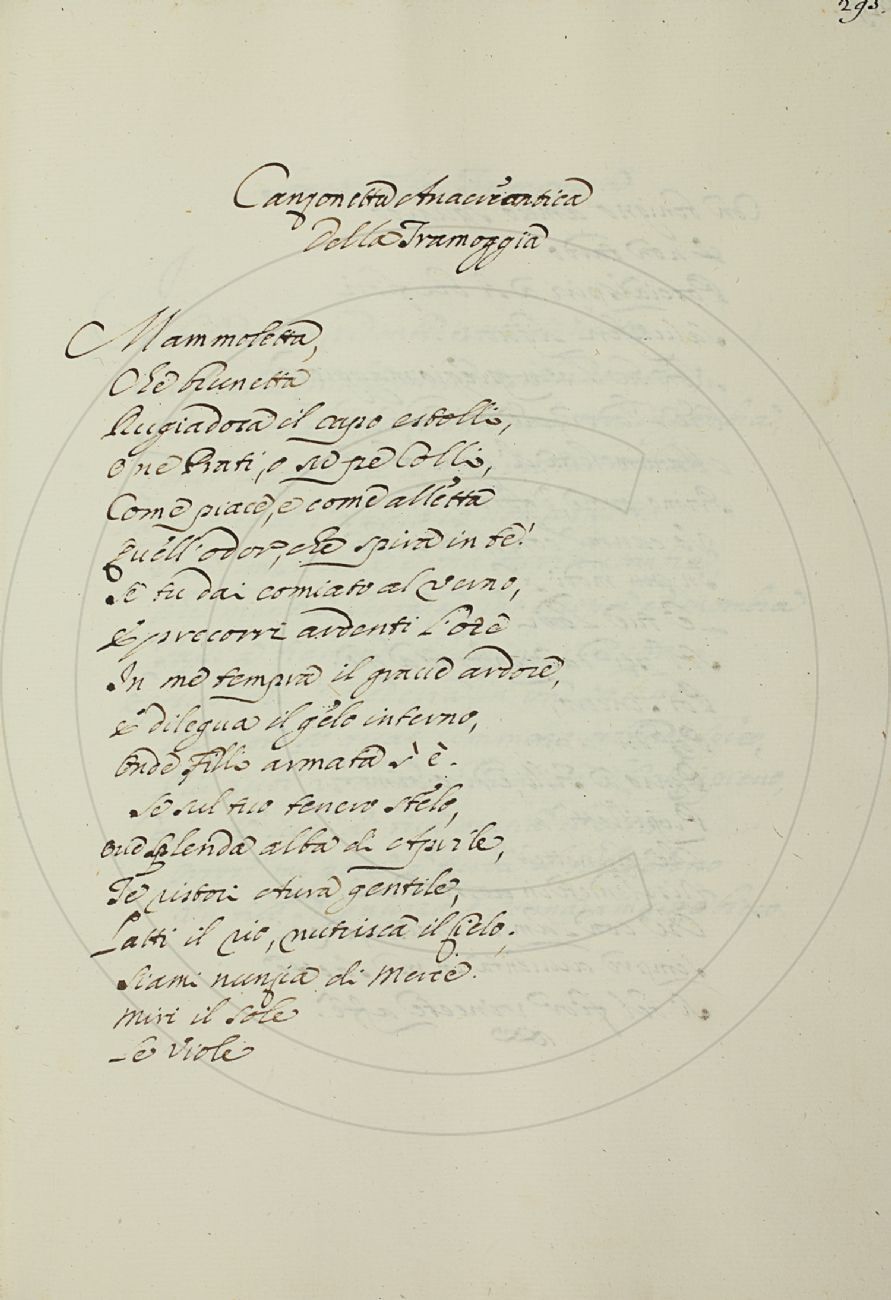 293.
Canzonetta Anacreantica
Della Tramoggia
Mammoletta,
Che brunetta
Rugiadosa il capo estolli,
O ne Prati, o su pe Colli,
Come piace, e come alletta
Quell'odor, che spira in te!
Se tu dai comiato al verno,
E precorri ardenti l'ore
In me tempra il grave ardore,
E dilegua il gelo interno,
Onde Filli armata s'è.
Se sul tuo tenero stelo,
Ove splenda alba di Aprile,
Te ristori Aura gentile,
Latti il rio, nutrisca il Cielo;
Siami nunzia di Mercè.
Miri il Sole
Le Viole